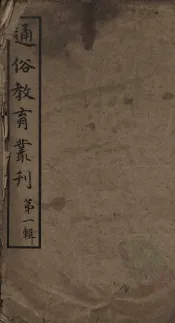 通俗教育叢刊
第一輯